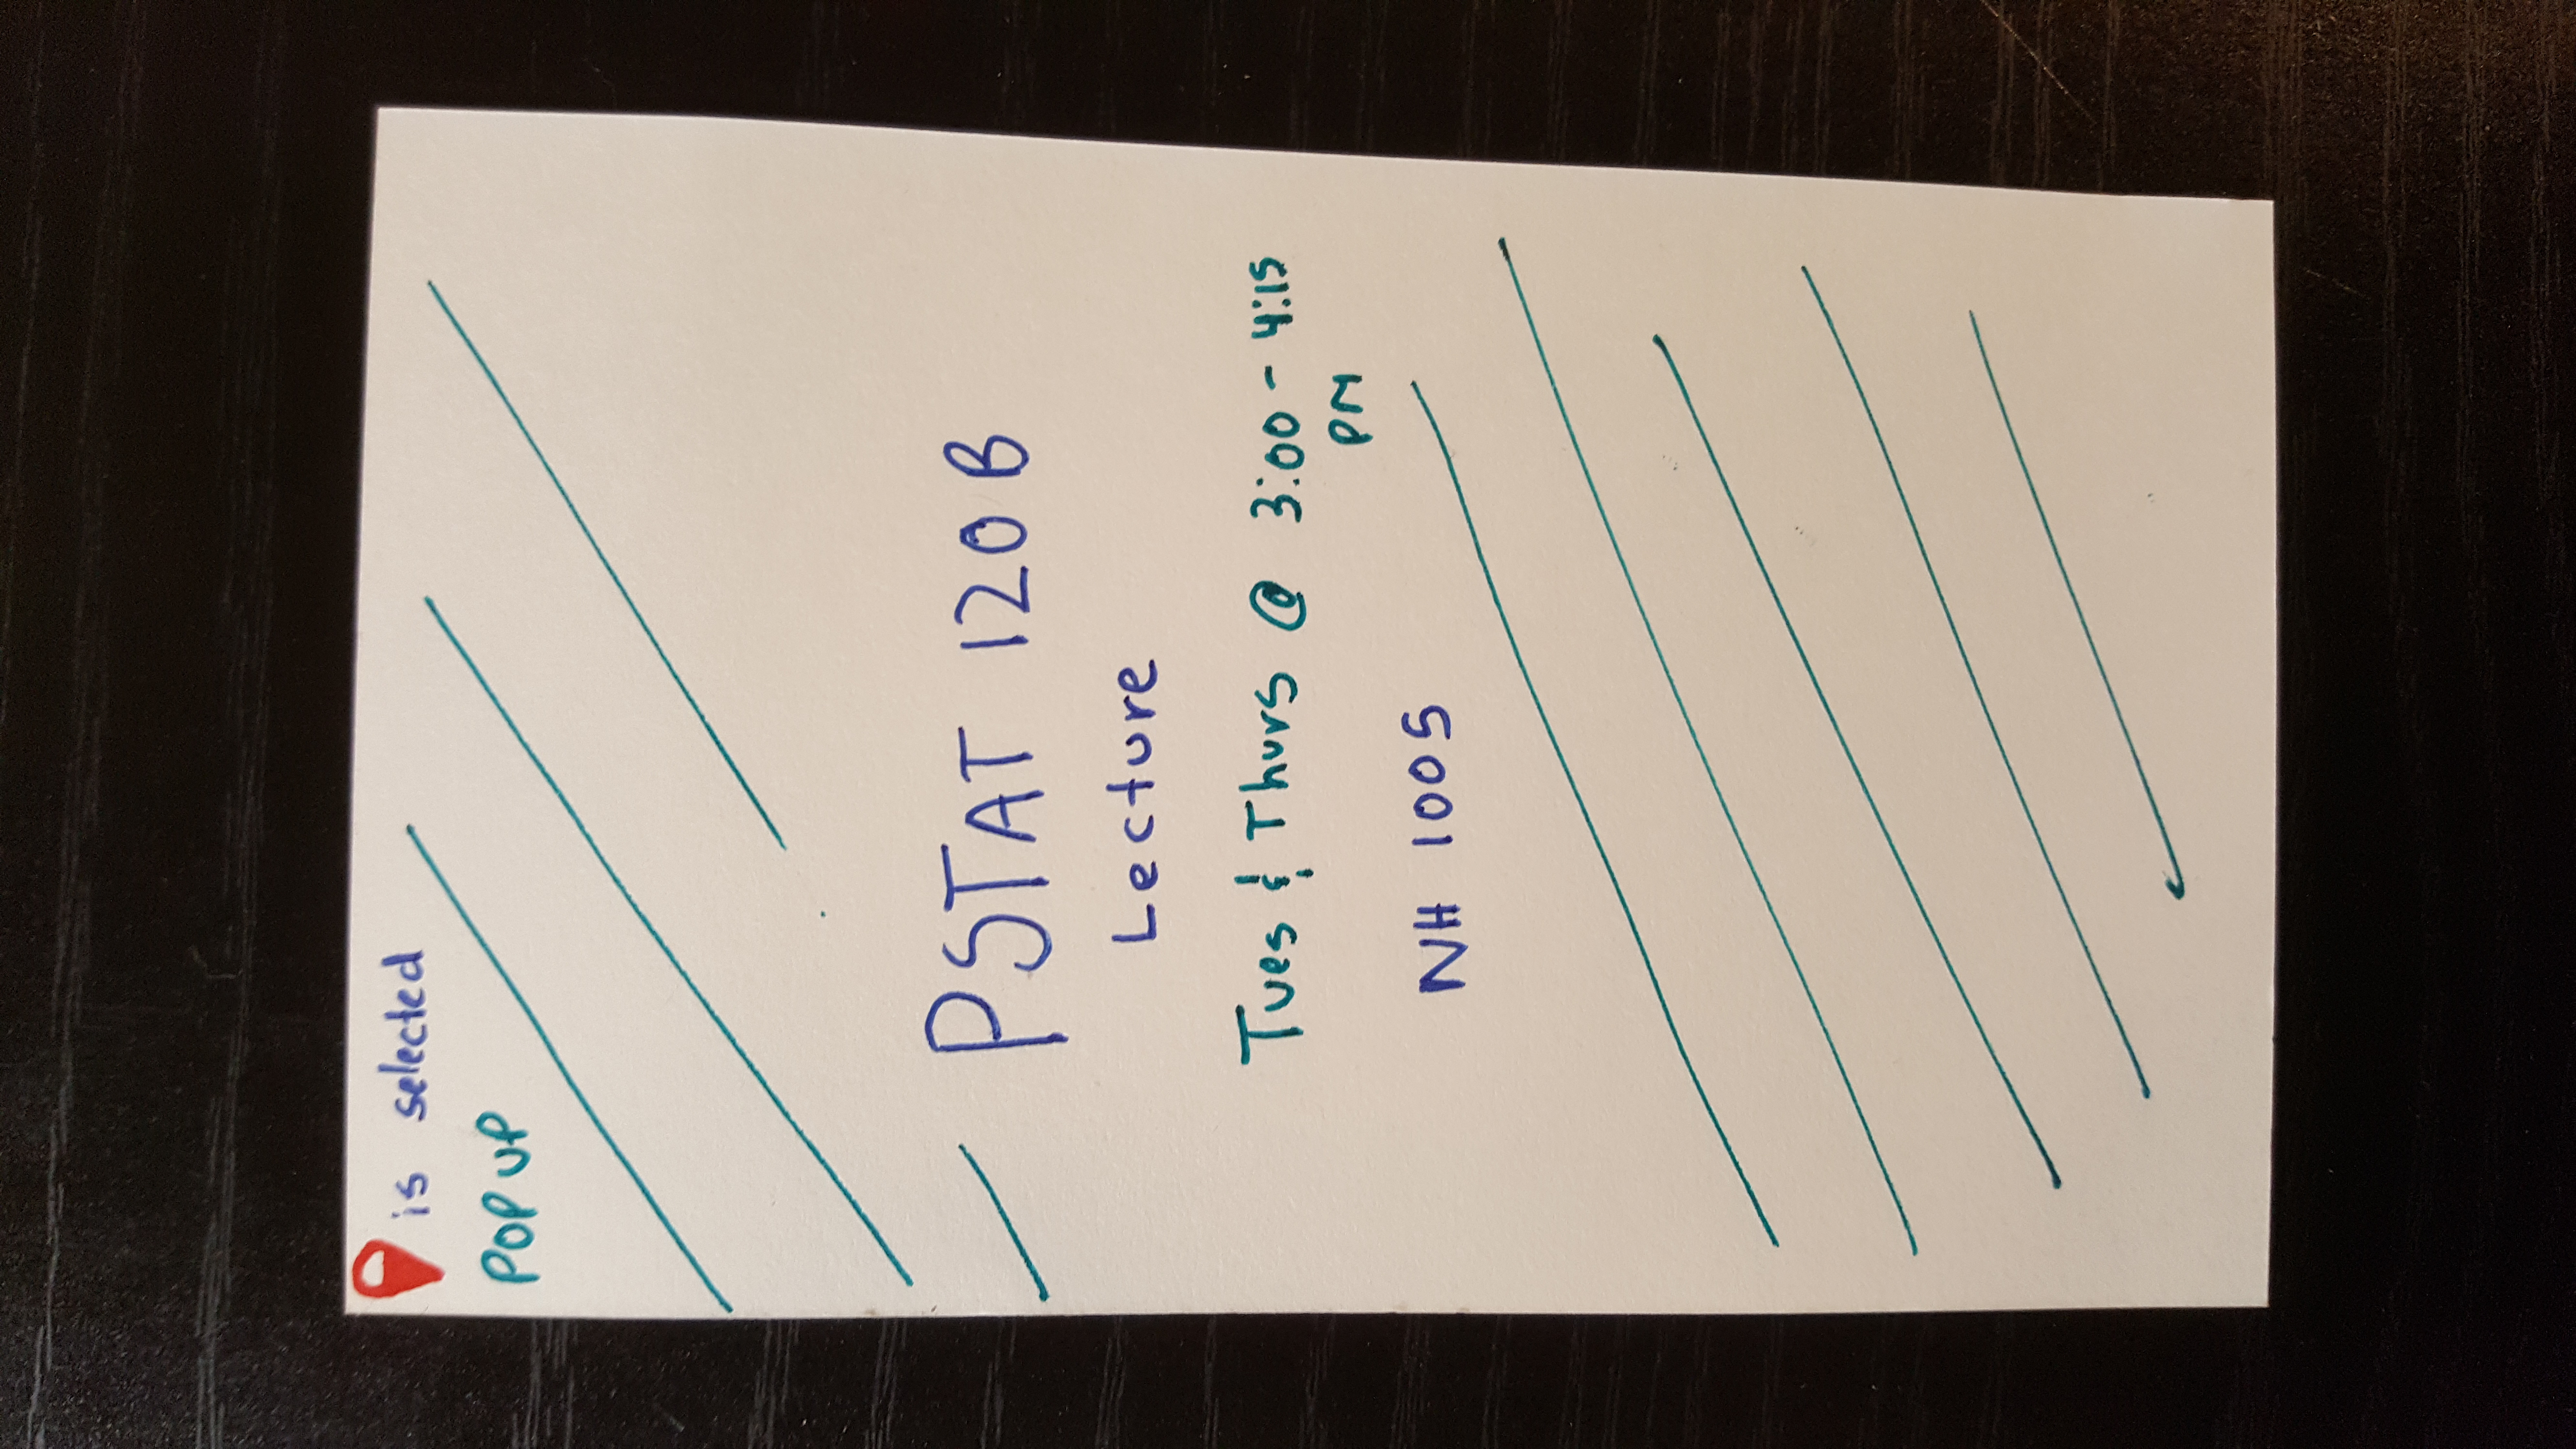 is selected
POP UP
PSTAT 120B
Lecture
Tues & Thurs @ 3:00 - 4:15
PM
NH 1005